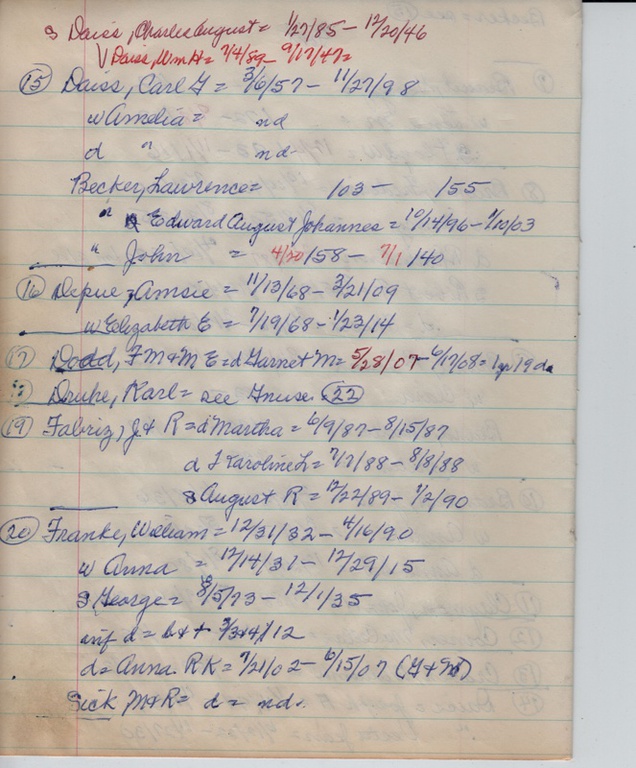 S Daiss, Charles August = 1/27/85 – 12/20/46
V Daiss, Wm H = 7/4/89 – 9/17/47=
(15) Daiss, Carl F = 3/6/57 – 11/27/98
w Amelia = nd
d " nd-
Becker, Lawrence = 103 – 155
" Edward August Johannes = 10/14/96 – 1/10/03
" John = 4/20/58 – 7/1/40
(16) Depue, Amsie = 11/13/68 – 3/21/09
w Elizabeth E = 7/19/68 – 1/23/14
(17) Dodd, F M & M E = d Garnet M = 5/28/07 – 6/17/08 = 1 yr 19 da
Druhe, Karl = see Knuse (22)
(19) Fabriz, J & R = d Martha = 6/9/87 – 8/15/87
d Karoline L = 7/7/88 – 8/8/88
s August R = 12/22/89 – 1/2/90
(20) Franke, William = 12/31/32 – 4/16/90
w Anna = 12/14/31 – 12/29/15
S George = 8/5/73 – 12/1/35
inf d = b & + 3/3&4/12
d = Anna R K = 7/21/02 – 6/15/07
Sick M & R = d = nd.